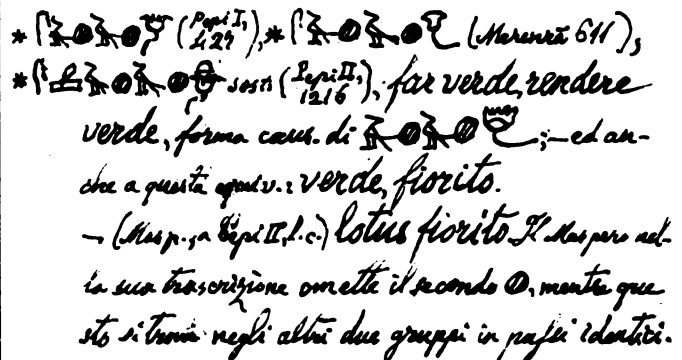 * (Pepi I, 429), * (Merenrā 611),
* sost. (Pepi II, 1216), far verde, rendere
verde, forma caus. di ;— ed an-
che a questa equiv.: verde, fiorito.
— (Masp., a Pepi II, l. c.) lotus fiorito. Il Maspero nel-
la sua trascrizione omette il secondo , mentre que
sto si trova negli altri due gruppi in passi identici.